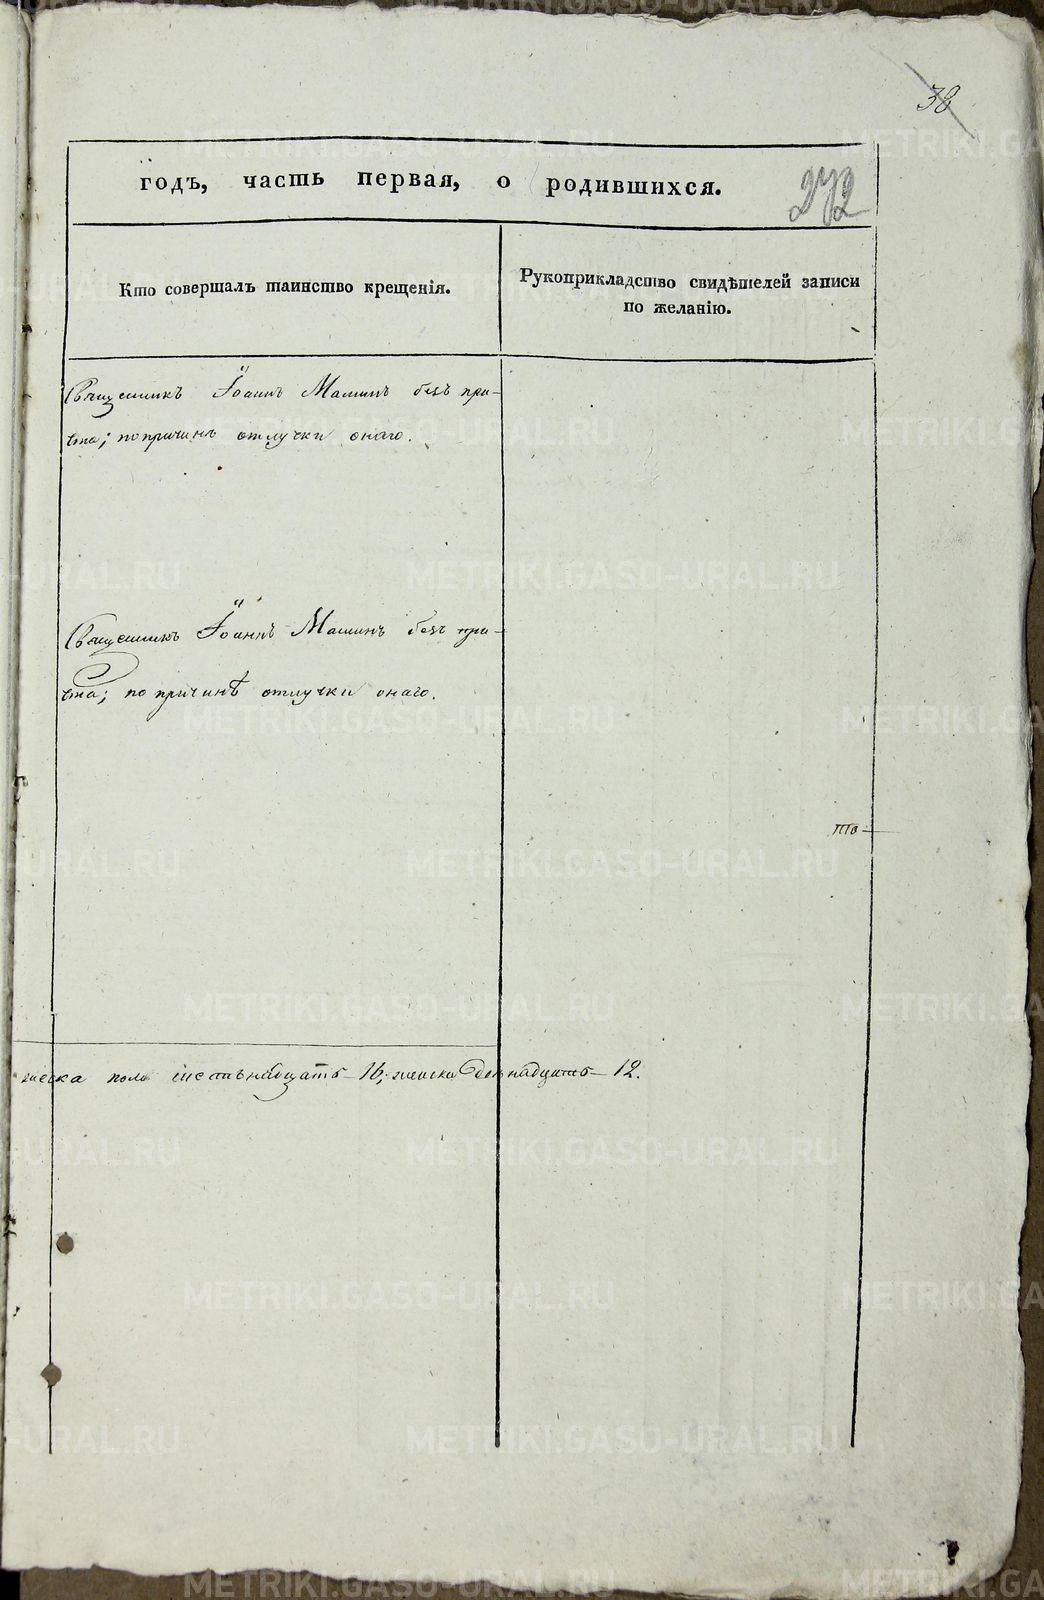 38
годъ, часть первая, о родившихся.
272
Кто совершалъ таинство крещенія.
Рукоприкладство свидѣтелей записи
по желанію.
Священникъ Іоаннъ Мамин безъ при-
чта; по причинѣ отлучки онаго.
Священникъ Іоаннъ Маминъ безъ при-
чта; по причинѣ отлучки онаго.
то
жеска пола шестьнадцать 16, женска двенадцать 12.
METRIKI.GASO-URAL.RU